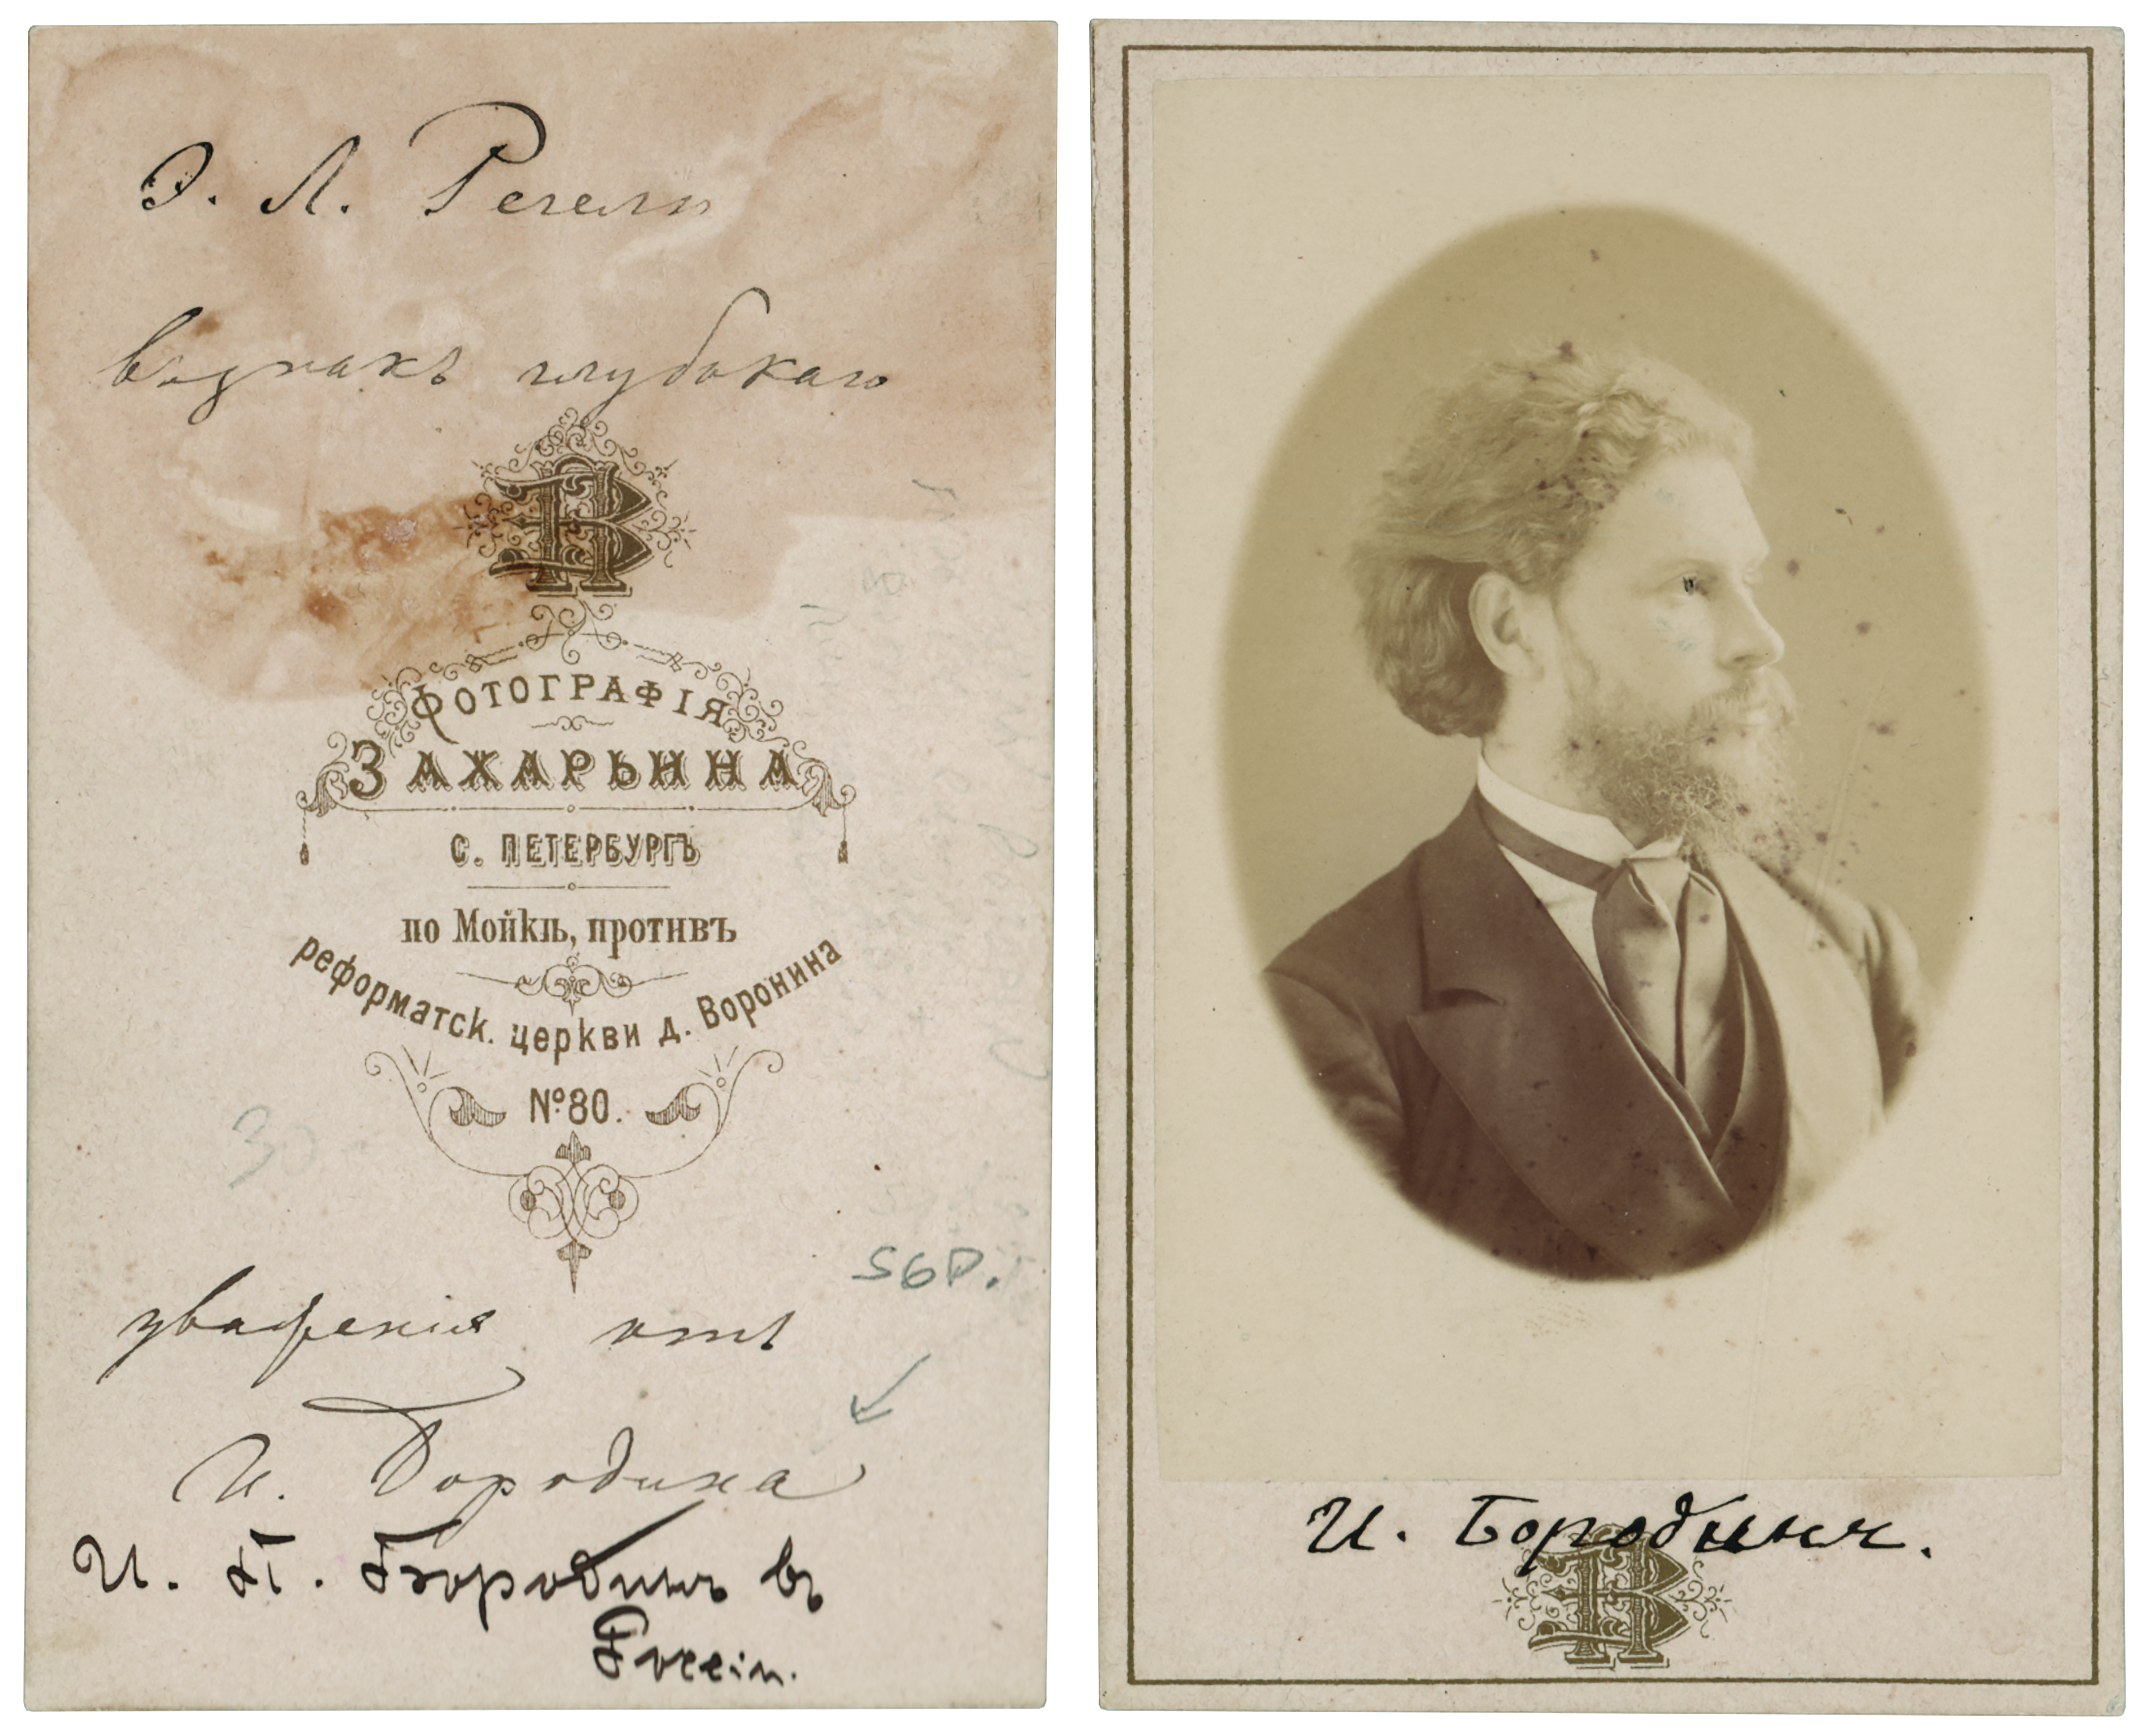 Э. Л. Регелю
въ знакъ глубокаго
ФОТОГРАФІЯ
ЗАХАРЬИНА
С. ПЕТЕРБУРГЪ
по Мойкѣ, противъ
реформатск. церкви д. Воронина
№ 80.
уваженія отъ
И. Бородина
И. П. Бородинъ въ
Россіи.
И. Бородинъ.